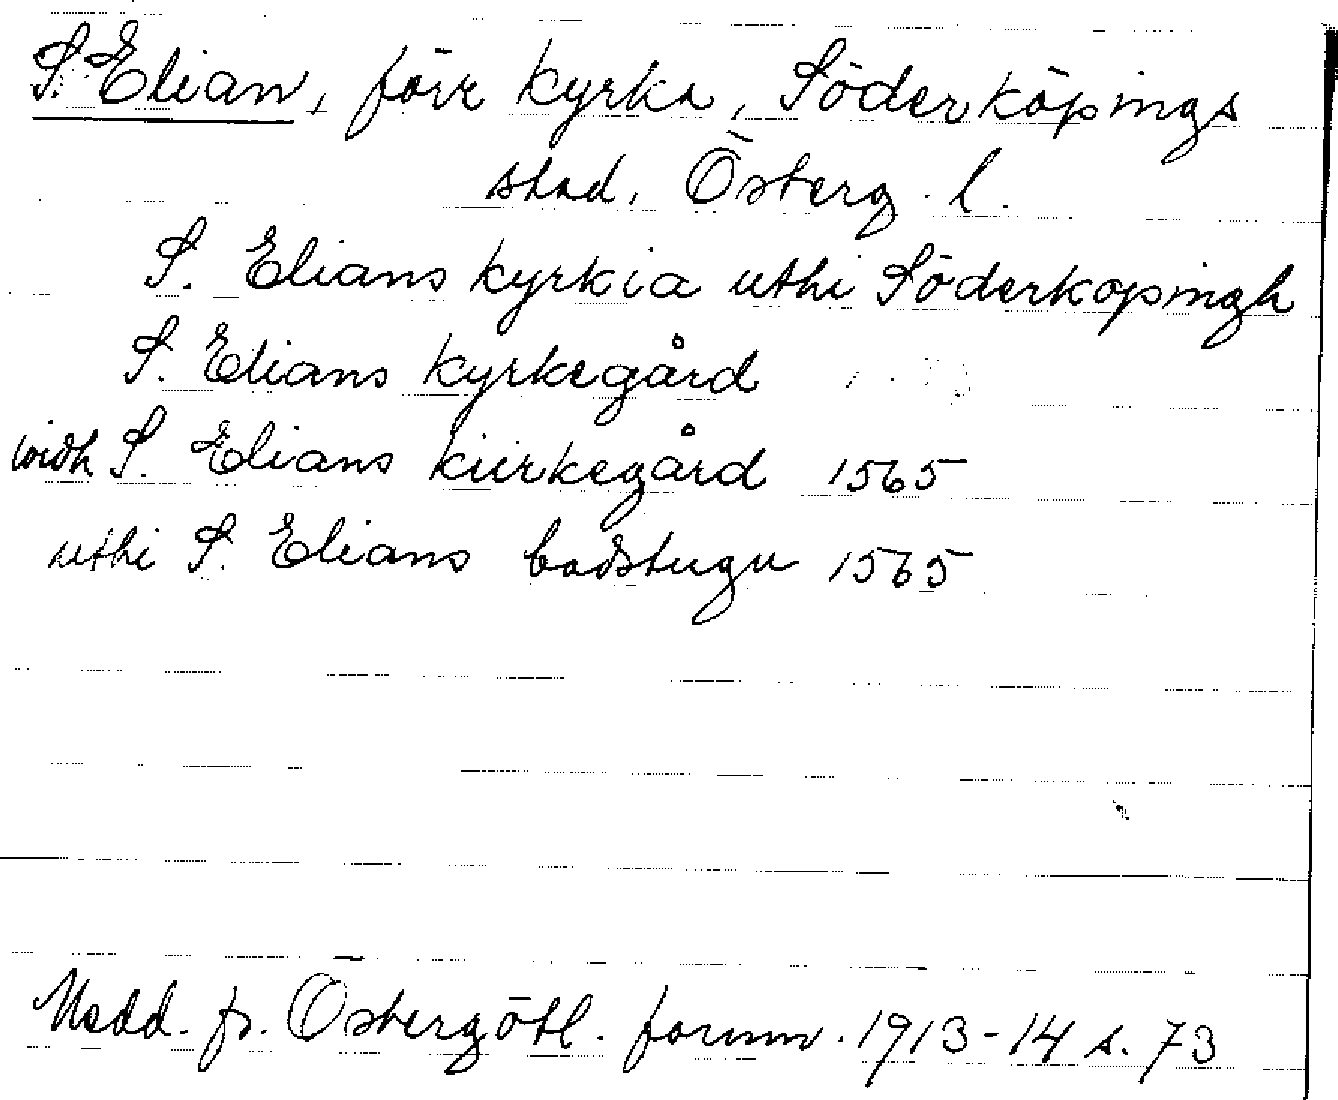 S. Elian, förr kyrka, Söderköpings
stad, Österg. l.
S. Elians kyrkia uthi Söderkopingh
S. Elians kyrkegård
widh S. Elians kiirkegård 1565
uthi S. Elians badstugu 1565
Medd. fr. Östergötl. fornm. 1913-14 s. 73